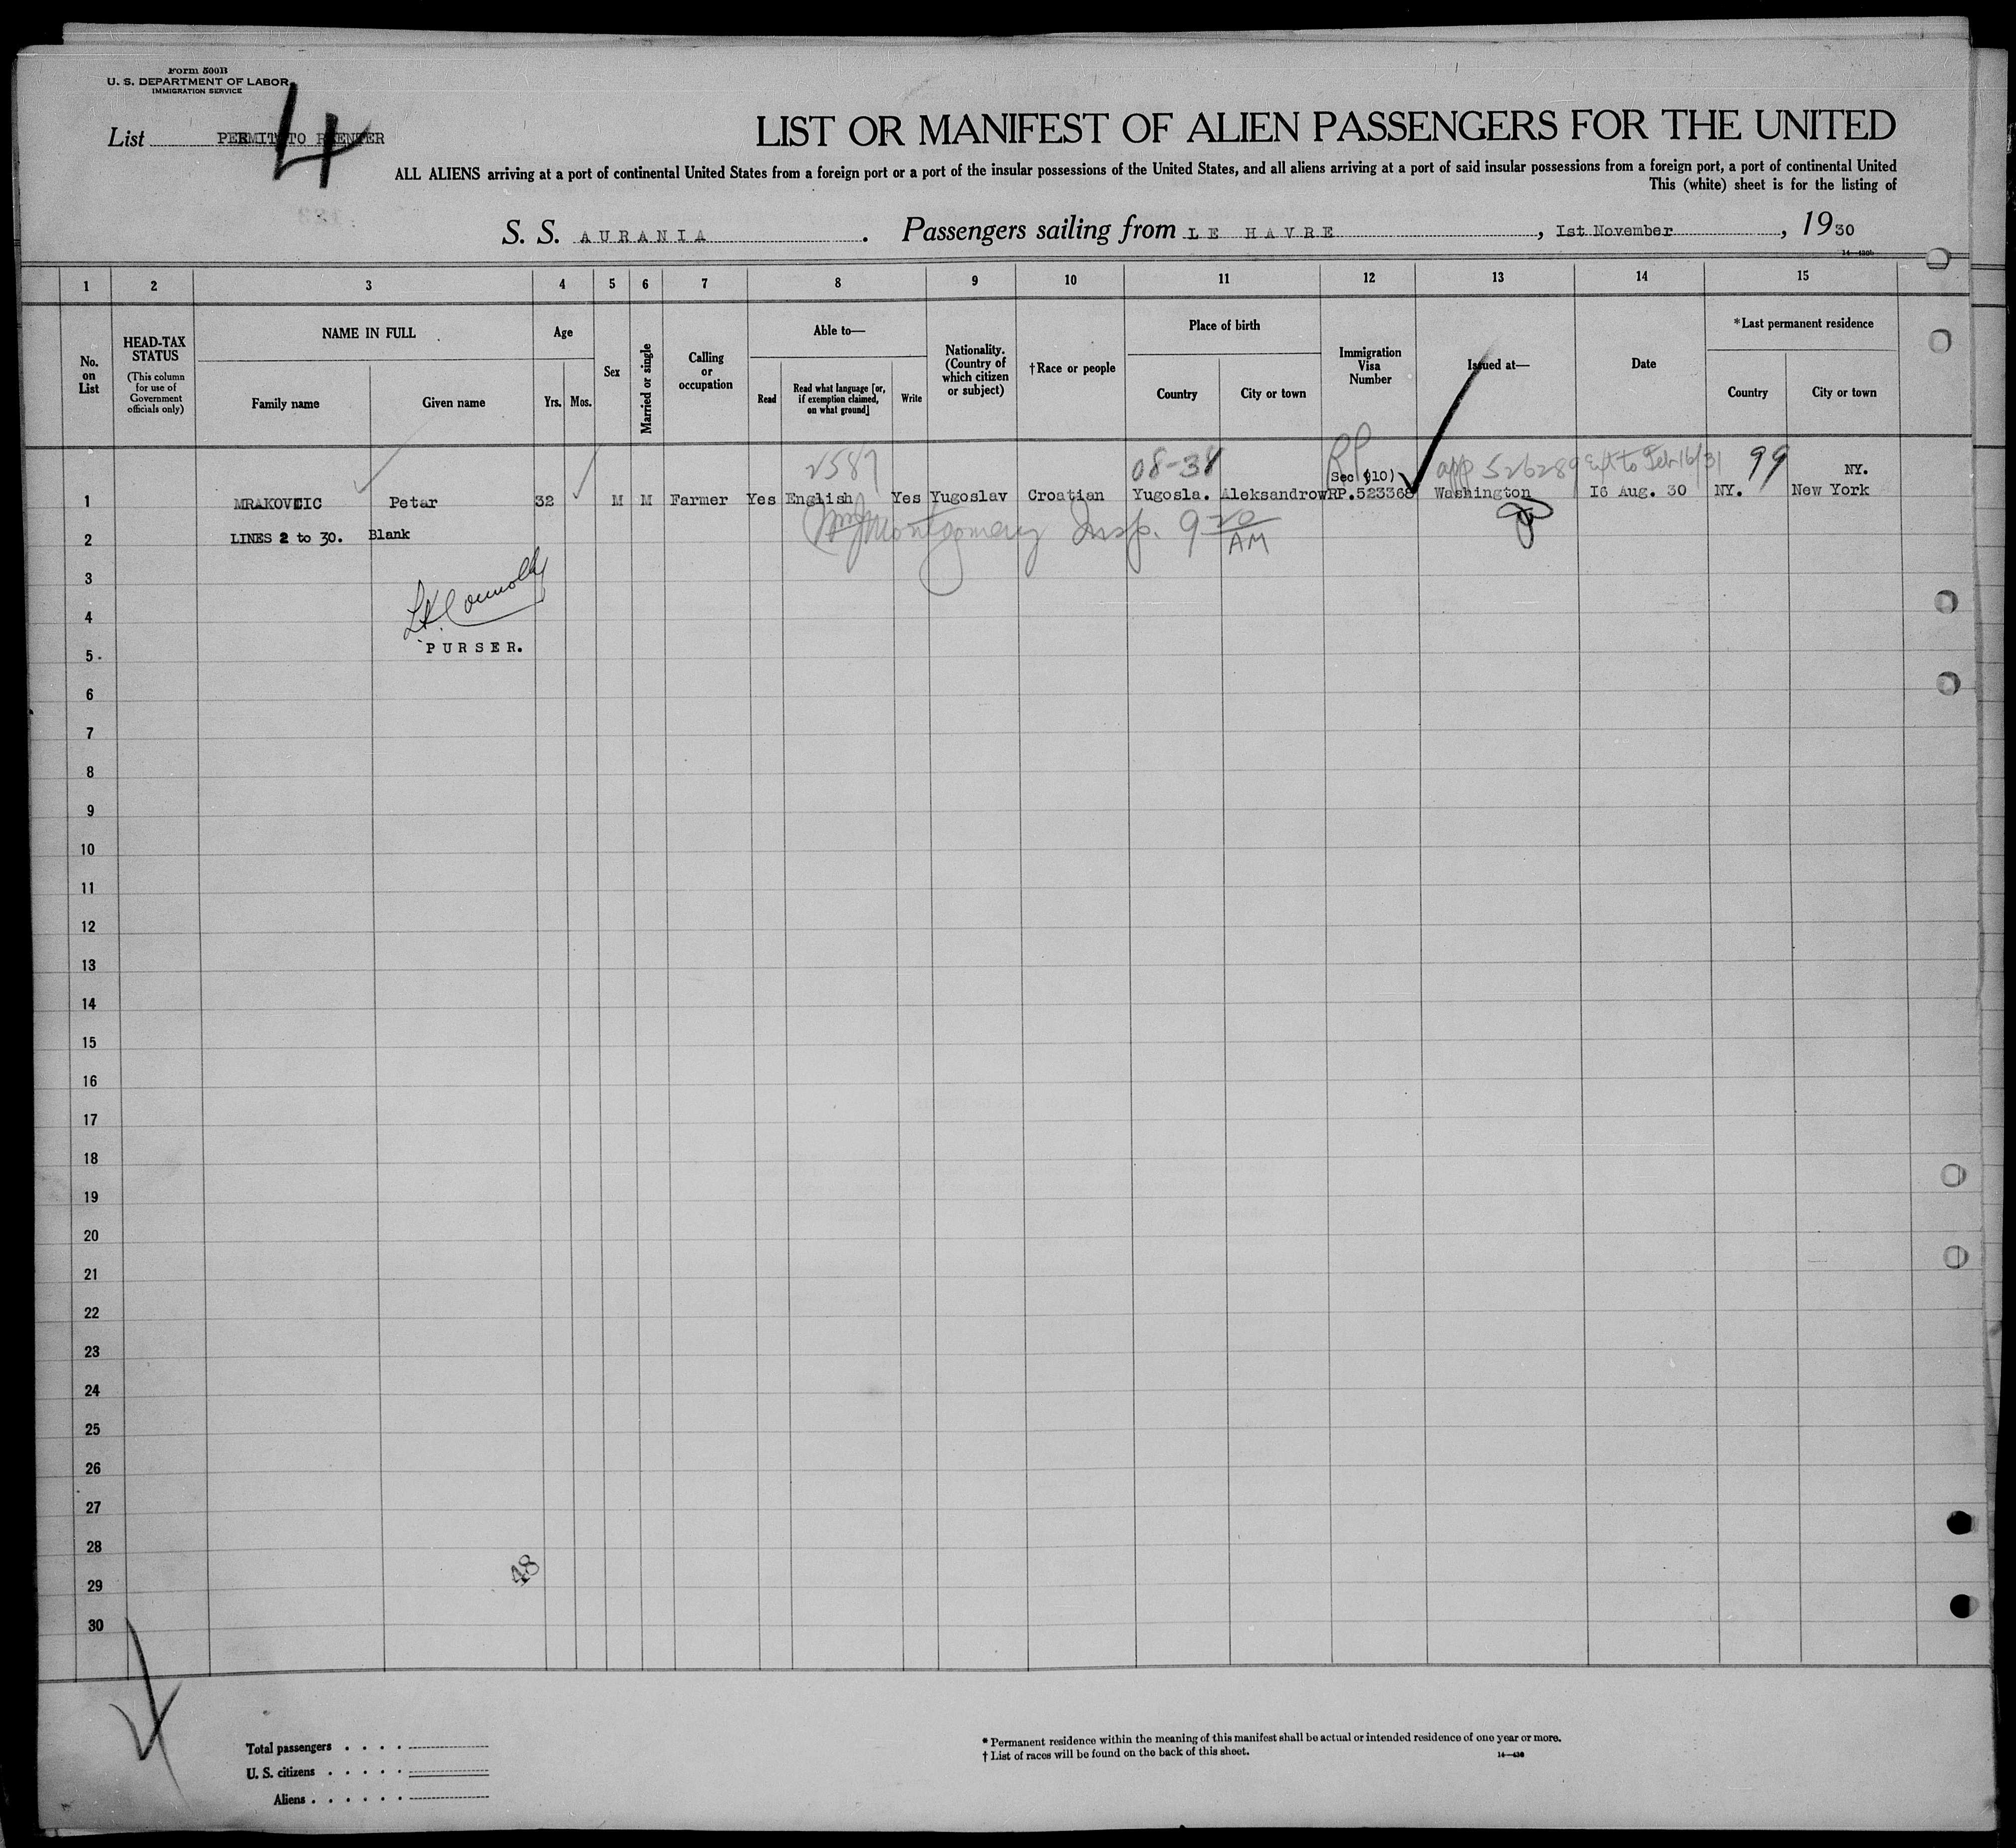 Form 500B
U. S. DEPARTMENT OF LABOR
IMMIGRATION SERVICE
List PERMIT TO REENTER
4
LIST OR MANIFEST OF ALIEN PASSENGERS FOR THE UNITED
ALL ALIENS arriving at a port of continental United States from a foreign port or a port of the insular possessions of the United States, and all aliens arriving at a port of said insular possessions from a foreign port, a port of continental United
This (white) sheet is for the listing of
S. S. AURANIA. Passengers sailing from LE HAVRE, 1st November, 1930
1 2 3 4 5 6 7 8 9 10 11 12 13 14 15
No. on List
HEAD-TAX STATUS
(This column for use of Government officials only)
NAME IN FULL
Family name
Given name
Age
Yrs.
Mos.
Sex
Married or single
Calling or occupation
Able to—
Read
Read what language [or, if exemption claimed, on what ground]
Write
Nationality. (Country of which citizen or subject)
†Race or people
Place of birth
Country
City or town
Immigration Visa Number
Issued at—
Date
*Last permanent residence
Country
City or town
2587 08-38 RP app 526289 Ext to Feb 16/31 99 NY.
Sec (10)
1 MRAKOVCIC Petar 32 M M Farmer Yes English Yes Yugoslav Croatian Yugosla. Aleksandrow RP.523368 Washington 16 Aug. 30 NY. New York
2 LINES 2 to 30. Blank
Montgomery Insp. 9 20 AM
3
4
L.K. Connolly
5 PURSER.
6
7
8
9
10
11
12
13
14
15
16
17
18
19
20
21
22
23
24
25
26
27
28
48
29
30
Total passengers . . . .
U. S. citizens . . . . .
Aliens . . . . . .
* Permanent residence within the meaning of this manifest shall be actual or intended residence of one year or more.
† List of races will be found on the back of this sheet.
14—430